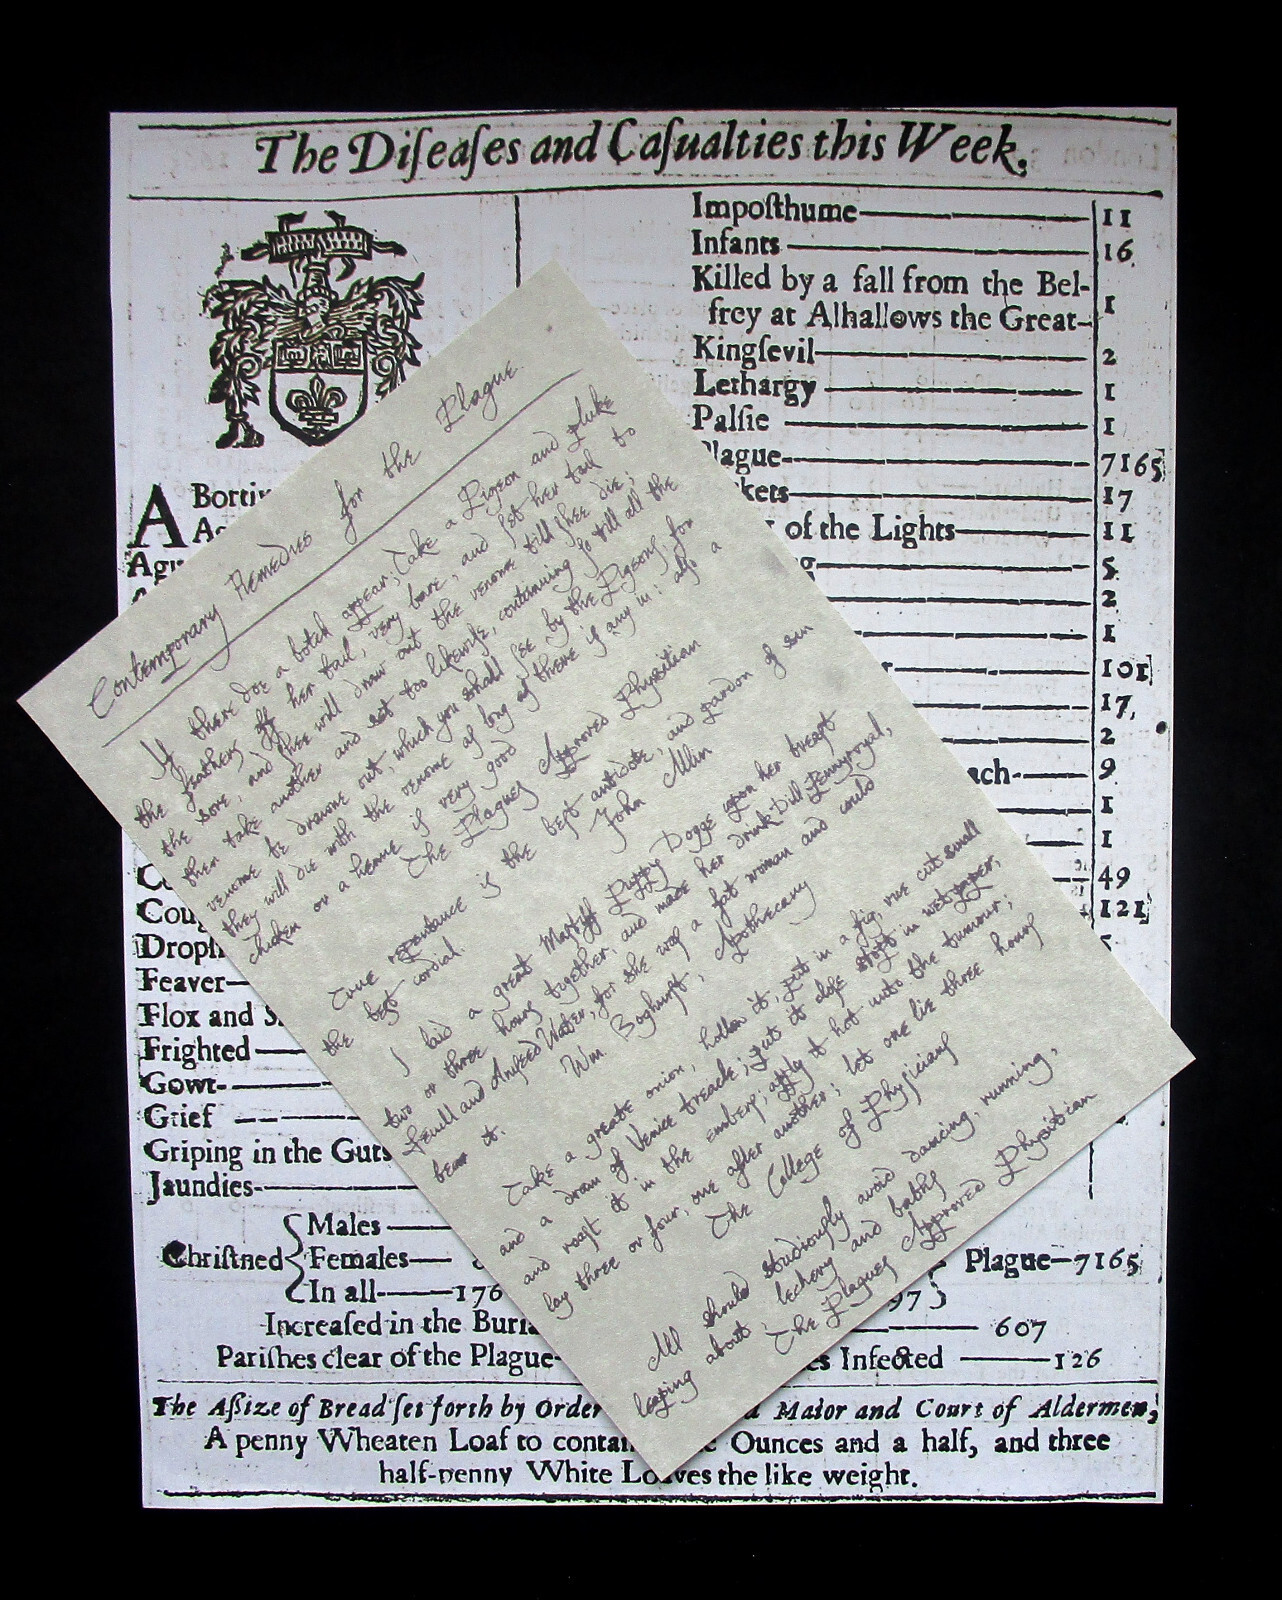 The Diſeaſes and Caſualties this Week.
Impoſthume 11
Infants 16
Killed by a fall from the Bel-
frey at Alhallows the Great 1
Kingſevil 2
Lethargy 1
Palſie 1
lague 7165
kets 17
of the Lights 11
g 5
2
1
r 101
17
2
ach 9
1
1
49
121
A Borti
Agu
Co
Coug
Dropſ
Feaver
Flox and S
Frighted
Gowt
Grief
Griping in the Guts
Jaundies
Contemporary Remedies for the Plague
If there doe a botch appear; Take a Pigeon and pluke
the feathers off her tail, very bare, and set her tail to
the sore, and shee will draw out the venome till shee die;
then take another and set too likewise, continuing so till all the
venome be drawne out, which you shall see by the Pigeons, for
they will die with the venome as long as there is any in: also a
chicken or a henne is very good
The Plagues Approved Physitian
True repentance is the best antidote, and pardon of sin
the best cordial.
John Allin
I laid a great Mastiff Puppy Dogge upon her breast
two or three hours together, and made her drink Dill, Pennyroyal,
Fenell and Aniseed Water, for she was a fat woman and could
bear it.
Wm. Boghurst, Apothecary
Take a greate onion, hollow it, put in a fig, rue cut small
and a dram of Venice treacle; put it close stopt in wet paper,
and roast it in the embers; apply it hot unto the tumour;
lay three or four, one after another; let one lie three hours
The College of Physicians
All should studiously avoid dancing, running,
leaping about, lechery and baths
The Plagues Approved Physitian
Chriſtned
Males
Females
In all 176
Plague 7165
97
Increaſed in the Buri 607
Pariſhes clear of the Plague es Infected 126
The Aſsize of Bread ſet forth by Order Maior and Court of Aldermen,
A penny Wheaten Loaf to contai Ounces and a half, and three
half-penny White Loaves the like weight.